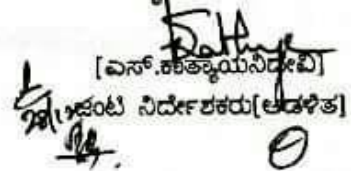 [ಎಸ್.ಕಾತ್ಯಾಯನಿದೇವಿ]
ಜಂಟಿ ನಿರ್ದೇಶಕರು[ಆಡಳಿತ]